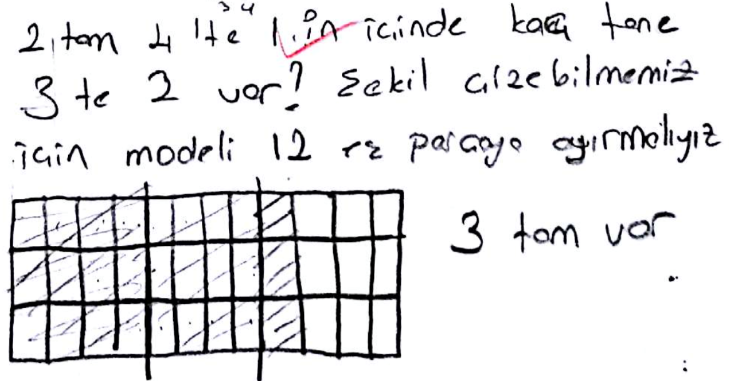 2 tam 4'te 1.in içinde kaç tane
3 te 2 var? Şekil çizebilmemiz
için modeli 12 parçaya ayırmalıyız
3 tam var